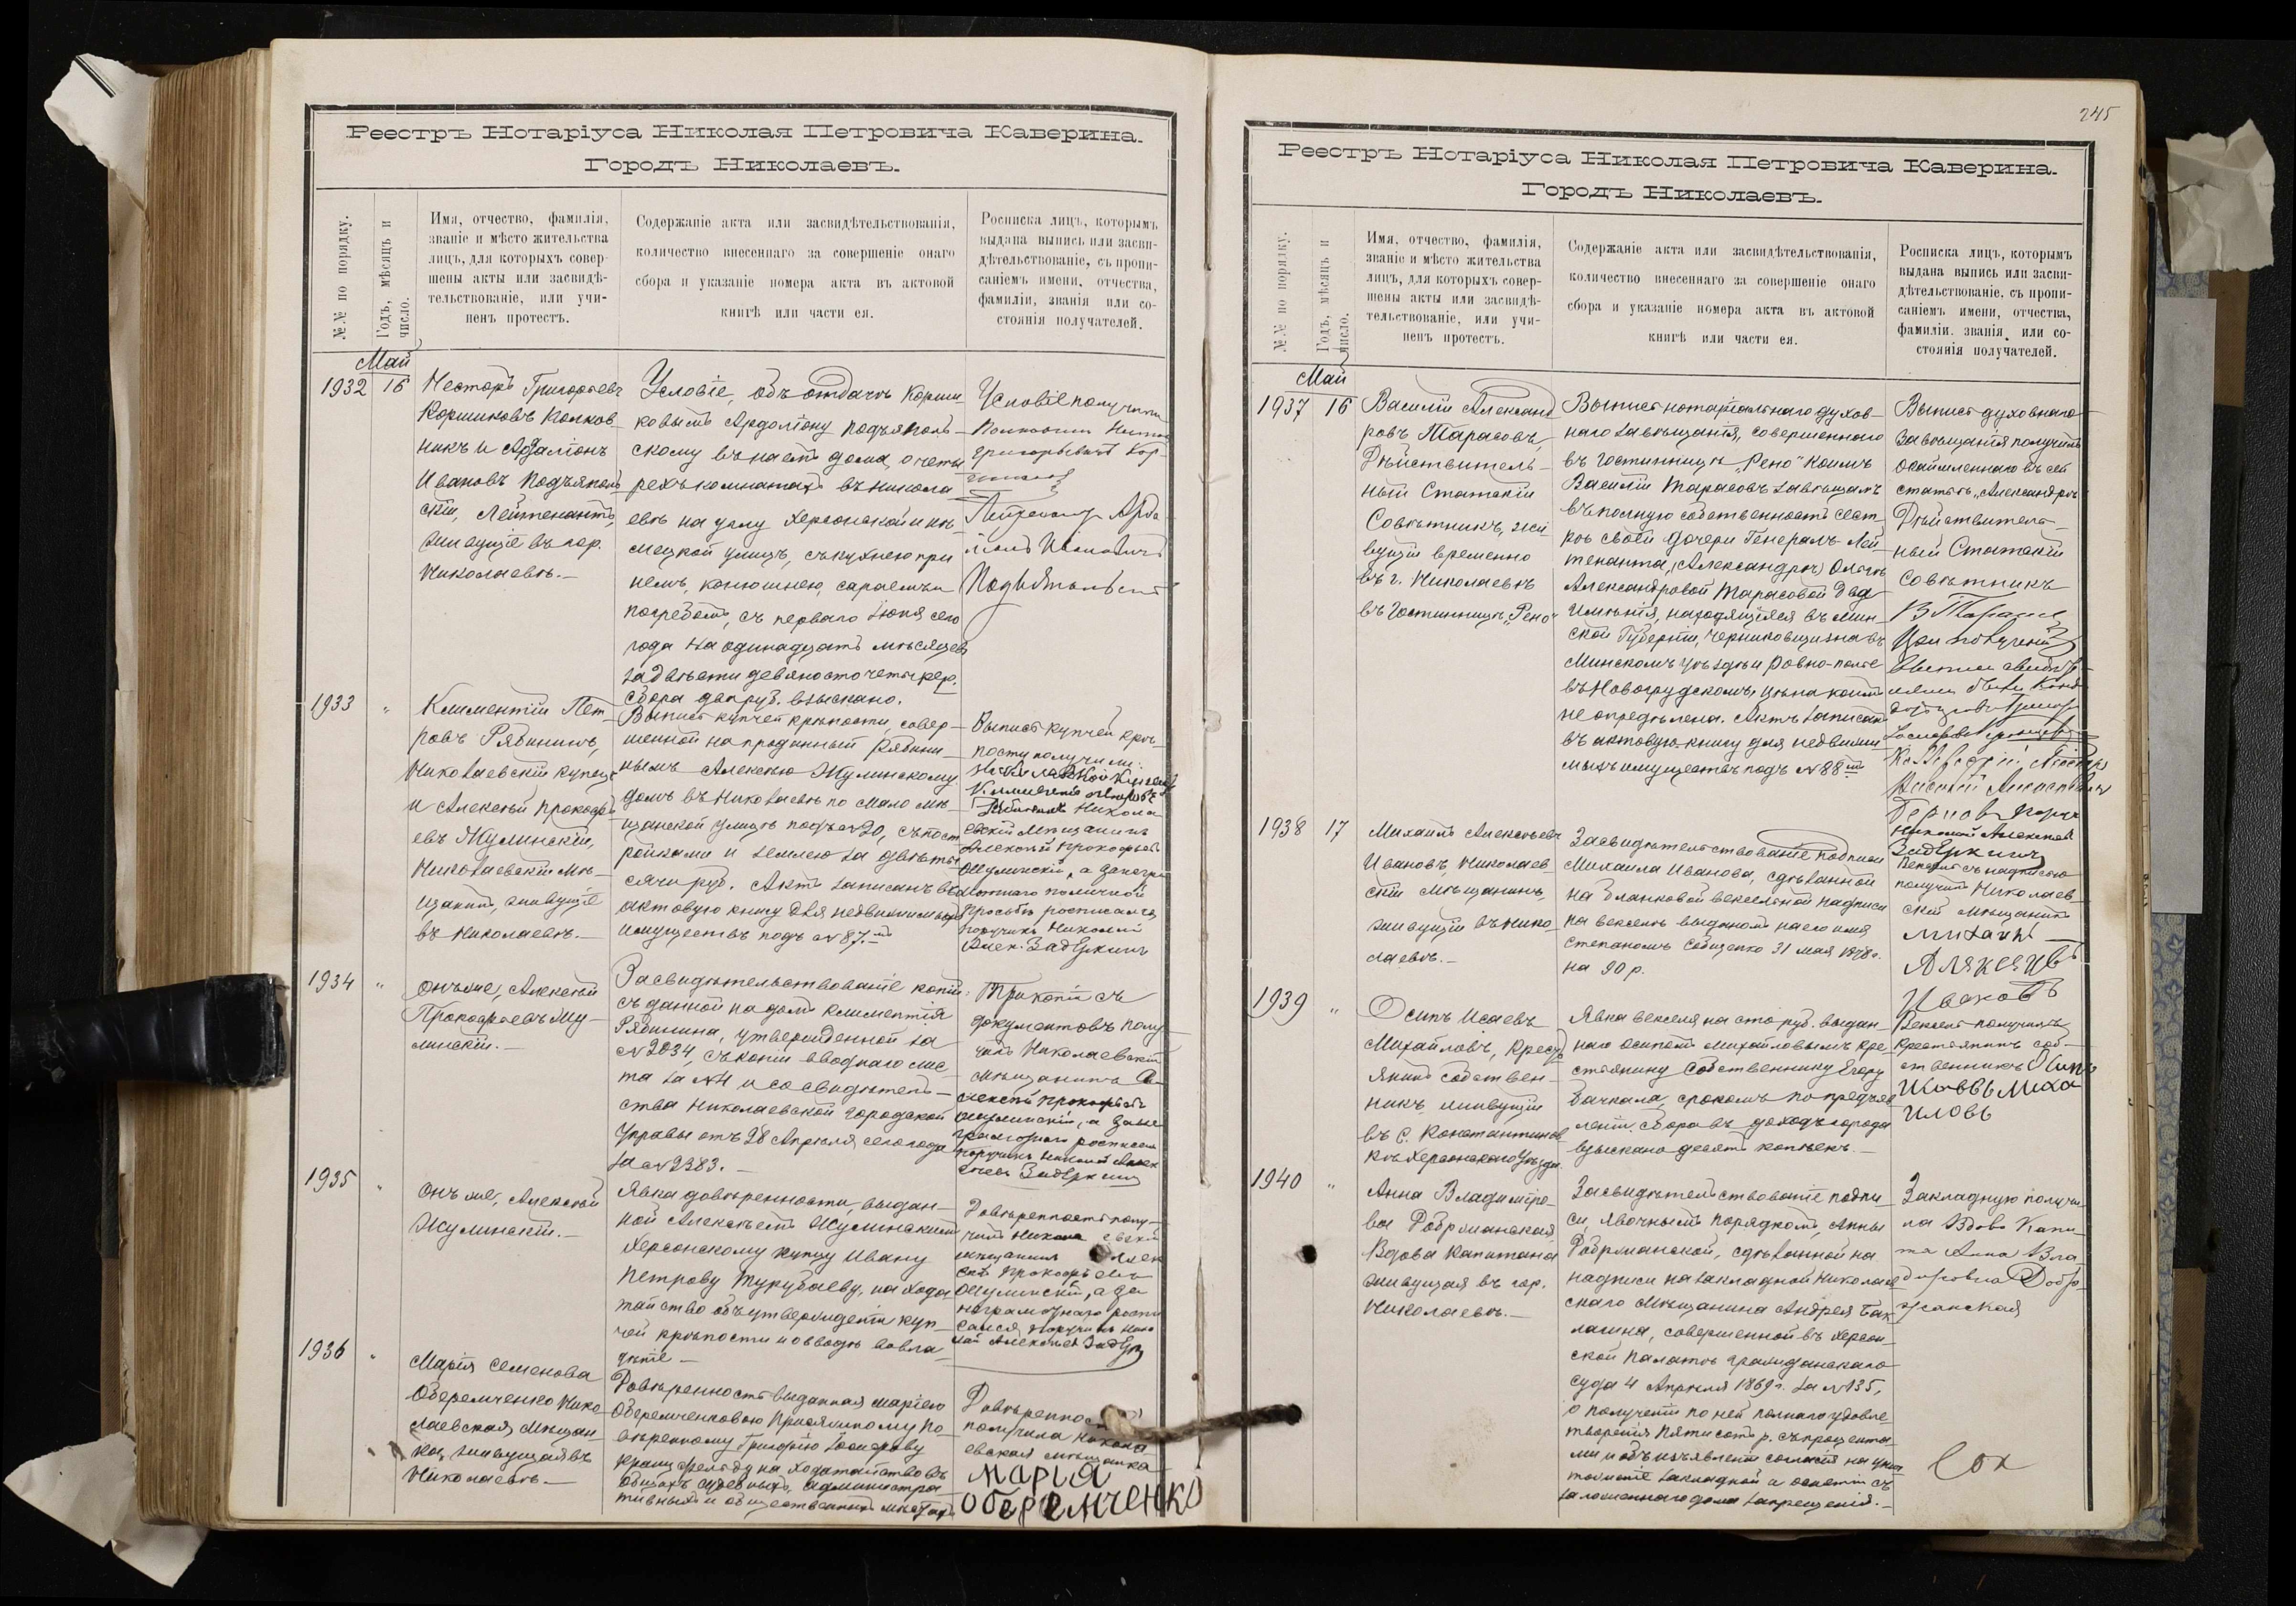 Реестръ Нотаріуса Николая Петровича Каверина.
Городъ Николаевъ.
№.№ по порядку.
Годъ, мѣсяцъ и
число.
Имя, отчество, фамилія,
званіе и мѣсто жительства
лицъ, для которыхъ совер-
шены акты или засвидѣ-
тельствованіе, или учи-
ненъ протестъ.
Содержаніе акта или засвидѣтельствованія,
количество внесеннаго за совершеніе онаго
сбора и указаніе номера акта въ актовой
книгѣ или части ея.
Росписка лицъ, которымъ
выдана выпись или засви-
дѣтельствованіе, съ пропи-
саніемъ имени, отчества,
фамиліи, званія или со-
стоянія получателей.
Май
1932
16
Несторъ Григорьевъ
Коршиковъ Полков-
никъ и Ардаліонъ
Ивановъ Подъяполь
скій, Лейтенантъ,
живущіе въ гор.
Николаевѣ.—
Условіе, объ отдачѣ Корши-
ковымъ Ардоліону Подъяполь-
скому въ наемъ дома, о четы
рехъ комнатахъ въ Никола
евѣ на углу Херсонской и нѣ-
мецкой улицъ, съ кухнею при
немъ, конюшнею, сараемъ и
погребомъ, съ перваго Іюня сего
года на одинадцать мѣсяцевъ
за двѣсти девяносто четыре р.
Сбора два руб. взыскано.
Условіе получили
Полковникъ
Григорьевичъ Кор-
Лейтенантъ Арда
ліонъ Ивановичъ
Подъяпольскій
1933
"
Климентій Пет-
ровъ Рябининъ,
Николаевскій купецъ
и Алексѣй Прокофь
евъ Жулинскій,
Николаевскій Мѣ-
щанинъ, живущіе
въ Николаевѣ.—
Выпись купчей крѣпости, совер-
шенной на проданный Рябини-
нымъ Алексѣю Жулинскому
домъ въ Николаевѣ по Мало мѣ-
щанской улицѣ подъ № 20, съ пост
ройками и землею за двѣ ты
сячи руб. Актъ записанъ въ
актовую книгу для недвижимыхъ
имуществъ подъ № 87.мъ
Выпись купчей крѣ-
пости получили:
Николаевской Купецъ
Климентій Петровъ
Рябининъ Никола
евскій Мѣщанинъ
Алексѣй Прокофьевъ
Жулинскій, а за негра
мотнаго по личной
просьбѣ росписался
Поручикъ Николай
Алек. Задеркинъ
1934
"
Онъ же, Алексѣй
Прокофьевъ Жу-
линскій.—
Засвидѣтельствованіе копіи:
съ данной на домъ Климентія
Рябинина, утвержденной за
№ 2034, съ копіи вводнаго лис-
та за № 4 и со свидѣтель-
ства Николаевской городской
Управы отъ 28 Апрѣля сего года
за № 2383.—
Три копіи съ
документовъ полу-
чилъ Николаевскій
мѣщанинъ А-
лексѣй Прокофьевъ
Жулинскій, а за не
грамотнаго росписался
поручикъ Николай Алек
сѣевъ Задеркинъ
1935
"
Онъ же, Алексѣй
Жулинскій.—
Явка довѣренности, выдан-
ной Алексѣемъ Жулинскимъ
Херсонскому купцу Ивану
Петрову Турубаеву, на хода-
тайство объ утвержденіи куп-
чей крѣпости и о вводѣ во вла-
дѣніе.—
Довѣренность полу-
чилъ Николаевскій
мѣщанинъ Алек
сѣй Прокофьевъ
Жулинскій, а за
неграмотнаго роспи
сался Поручикъ Нико
лай Алексѣевъ Задер
1936
"
Марія Семенова
Оберемченко Нико-
лаевская Мѣщан-
ка, живущая въ
Николаевѣ.—
Довѣренность выданная Маріею
Оберемченковою Присяжному По-
вѣренному Григорію Іосифову
на ходатайство въ
общихъ судебныхъ, администра
тивныхъ и общественныхъ мѣстахъ
Довѣренность
получила Никола-
евская мѣщанка
Мария
оберемченко
245
Реестръ Нотаріуса Николая Петровича Каверина.
Городъ Николаевъ.
№.№ по порядку.
Годъ, мѣсяцъ и
число.
Имя, отчество, фамилія,
званіе и мѣсто жительства
лицъ, для которыхъ совер-
шены акты или засвидѣ-
тельствованіе, или учи-
ненъ протестъ.
Содержаніе акта или засвидѣтельствованія,
количество внесеннаго за совершеніе онаго
сбора и указаніе номера акта въ актовой
книгѣ или части ея.
Росписка лицъ, которымъ
выдана выпись или засви-
дѣтельствованіе, съ пропи-
саніемъ имени, отчества,
фамиліи, званія или со-
стоянія получателей.
Май
1937
16
Василій Александ
ровъ Тарасовъ,
Дѣйствитель-
ный Статскій
Совѣтникъ, жи
вущій временно
въ г. Николаевѣ
въ Гостинницѣ „Рено"
Выпись нотаріальнаго духов-
наго завѣщанія, совершеннаго
въ гостинницѣ „Рено" коимъ
Василій Тарасовъ завѣщалъ
въ полную собственность сест-
рѣ своей дочери Генералъ-Лей-
тенанта, (Александрѣ) Ольгѣ
Александровой Тарасовой два
имѣнія, находящіеся въ Мин-
ской Губерніи, Черниковщизна въ
Минскомъ уѣздѣ и Ровно-поле
въ Новогрудскомъ, цѣна коимъ
не опредѣлена. Актъ записанъ
въ актовую книгу для недвижи-
мыхъ имуществъ подъ № 88мъ
Выпись духовнаго
завѣщанія получилъ
въ сей
статьѣ „Александрѣ"
Дѣйствитель-
ный Статскій
Совѣтникъ
В Тарасовъ
При полученіи
выписи свидѣте-
лями были
Николай Алексѣевъ
Задеркинъ
1938
17
Михаилъ Алексѣевъ
Ивановъ, Николаев-
скій Мѣщанинъ,
живущій въ Нико-
лаевѣ.—
Засвидѣтельствованіе подписи
Михаила Иванова, сдѣланной
на бланковой вексельной надписи
на векселѣ выданномъ на его имя
Степаномъ 31 мая 1878 г.
на 90 р.
Вексель съ надписью
получилъ Николаев-
скій мѣщанинъ
Михаилъ
Аляксеивъ
Ивановъ
1939
"
Осипъ Исаевъ
Михайловъ, кресть
янинъ собствен-
никъ, живущій
въ С. Константинов
кѣ Херсонскаго Уѣзда.
Явка векселя на сто руб. выдан-
наго Осипомъ Михайловымъ кре-
стьянину Собственнику Егору
Бачкала, срокомъ по предъяв
леніи. Сбора въ доходъ города
взыскано десять копѣекъ.—
Вексель получилъ
Крестьянинъ соб-
ственникъ Осипъ
Исаввъ Миха
иловъ
1940
"
Анна Владиміро-
ва Добржанская,
Вдова Капитана
живущая въ гор.
Николаевѣ.—
Засвидѣтельствованіе подпи-
си, явочнымъ порядкомъ, Анны
Добржанской, сдѣланной на
надписи на закладной Николаев
скаго Мѣщанина Андрея Бак
лагина, совершенной въ Херсон-
ской Палатѣ гражданскаго
суда 4 Апрѣля 1869 г. за № 135,
о полученіи по ней полнаго удовле-
творенія Пятисотъ р. съ процента-
ми и объ изъявленіи согласія на унич
тоженіе закладной и снятіи съ
заложеннаго дома запрещенія.—
Закладную получи-
ла Вдова Капи-
та Анна Вла
диировна Добр
жанская